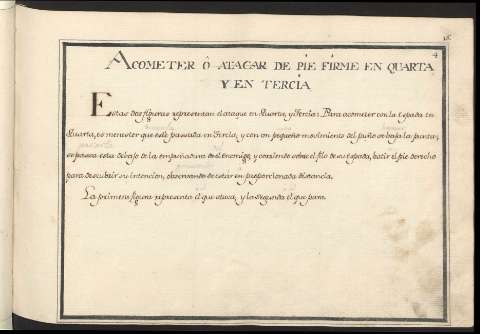 4
ACOMETER Ô ATACAR DE PIE FIRME EN QUARTA
Y EN TERCIA
Estas dos figuras representan el ataque en Quarta, y Tercia: Para acometer con la Espada en
Quarta, es menester que esté passada en Tercia, y con un pequeño movimiento del puño se baxa la punta;
se passa esta debaxo de la empuñadura del Enemigo, y corriendo sobre el filo de su espada, batir el pie derecho
para descubrir su intencion, observando de estar en proporcionada distancia.
La primera figura representa el que ataca, y la segunda el que para.